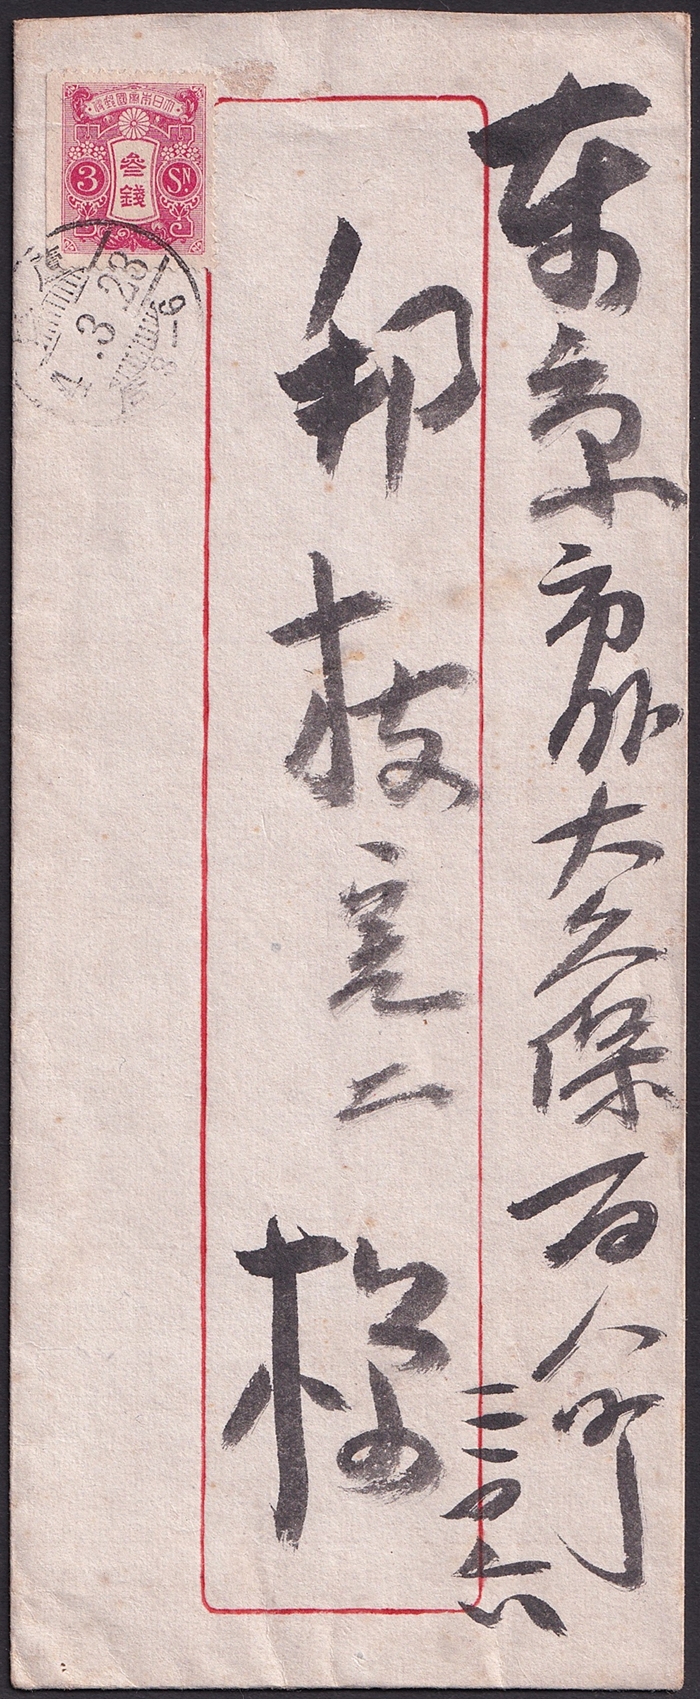 東京市外大久保百人町
邦枝完二様
大日本帝國郵便
3
叁錢
SN.
4.3.28